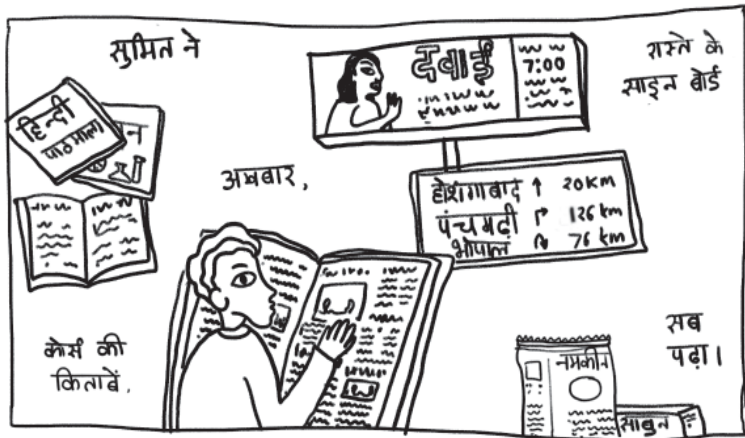 सुमित ने
हिन्दी
पाठमाला
न
दवाई
7:00
रास्ते के
साइन बोर्ड
अखबार,
होशंगाबाद ↑ 20 KM
पंचमढ़ी ↱ 126 km
भोपाल 76 km
कोर्स की
किताबें,
नमकीन
साबुन
सब
पढ़ा।